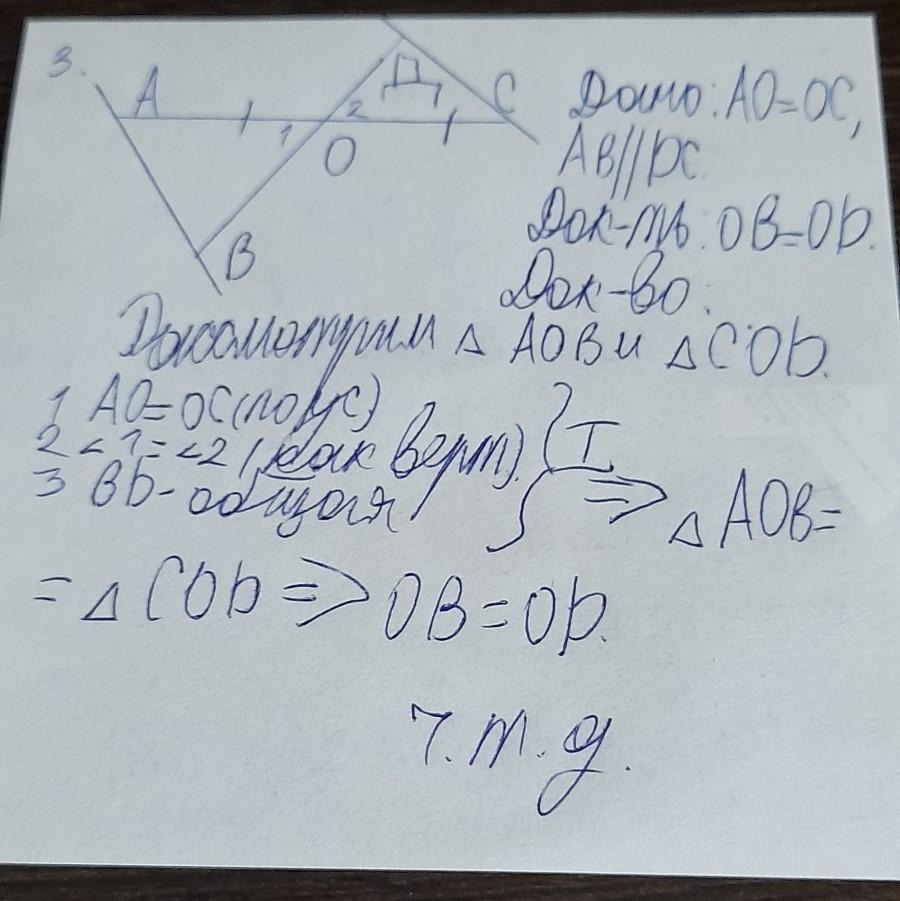 3.
A
Д
C
1
2
O
B
Дано: AO=OC,
AB//DC.
Док-ть: OB=OD.
Док-во:
Рассмотрим △ AOB и △COD.
1 AO=OC(по ус)
2 <1=<2 (как верт).
3 BD-общая
I
=> △ AOB=
= △ COD => OB=OD.
ч.т.д.